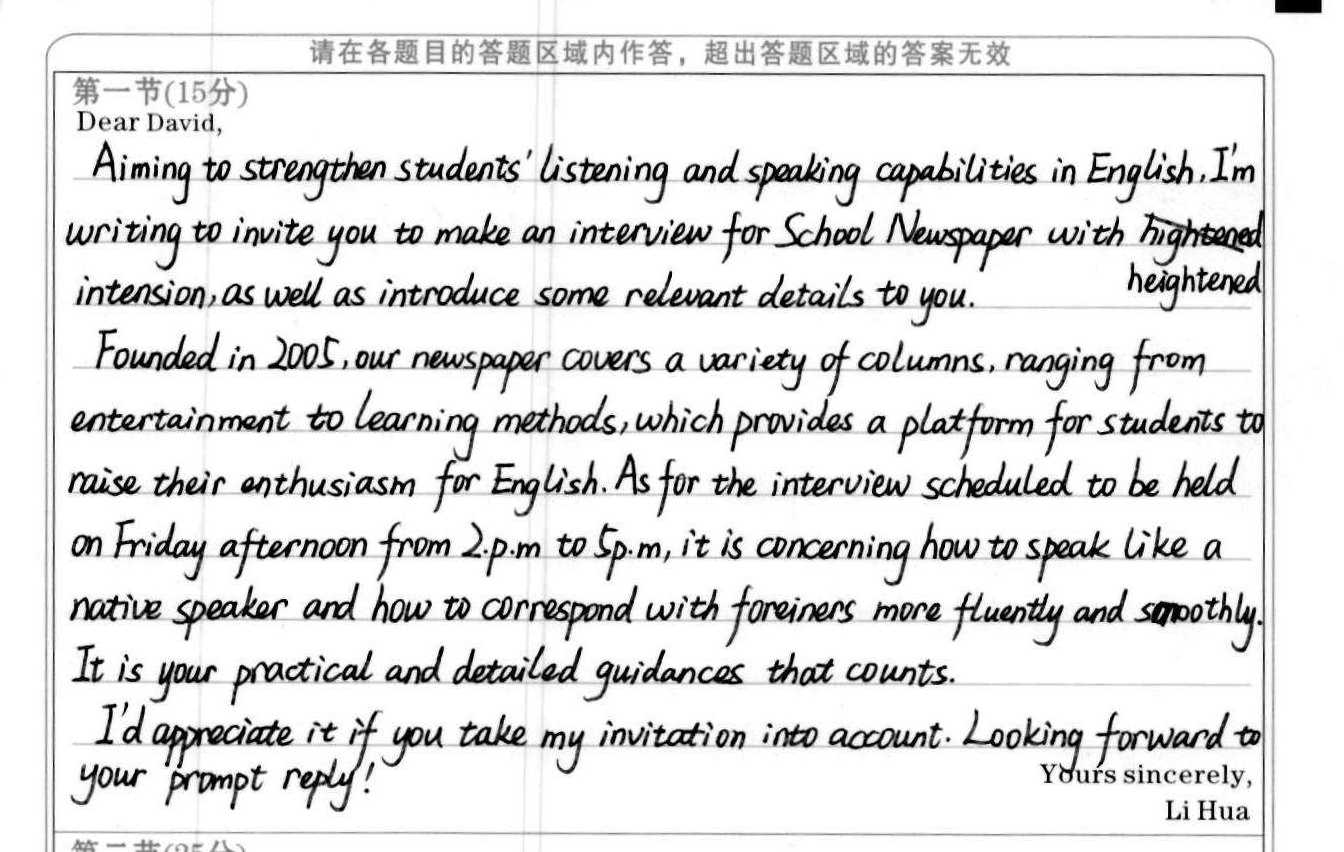 请在各题目的答题区域内作答，超出答题区域的答案无效
第一节(15分)
Dear David,
Aiming to strengthen students' listening and speaking capabilities in English, I'm
writing to invite you to make an interview for School Newspaper with hightened
intension, as well as introduce some relevant details to you. heightened
Founded in 2005, our newspaper covers a variety of columns, ranging from
entertainment to learning methods, which provides a platform for students to
raise their enthusiasm for English. As for the interview scheduled to be held
on Friday afternoon from 2.p.m to 5p.m, it is concerning how to speak like a
native speaker and how to correspond with foreiners more fluently and smoothly.
It is your practical and detailed guidances that counts.
I'd appreciate it if you take my invitation into account. Looking forward to
your prompt reply!
Yours sincerely,
Li Hua
第二节(25分)